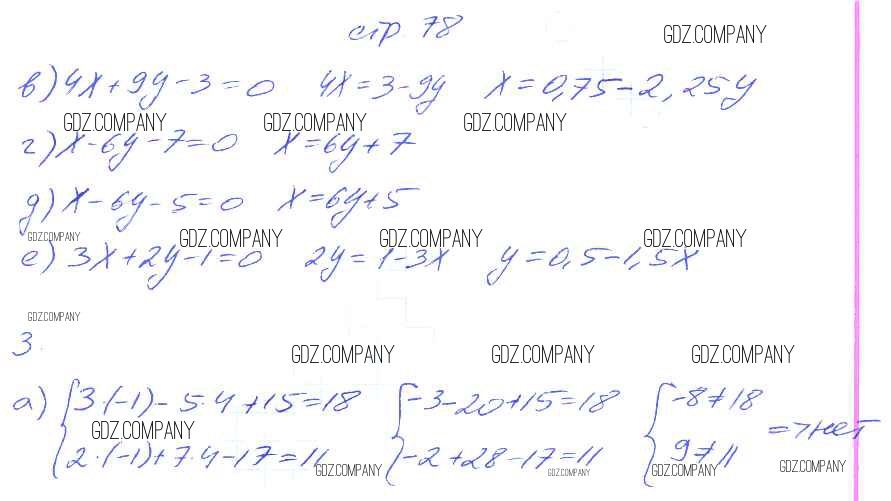 стр 78
GDZ.COMPANY
в) 4x + 9y - 3 = 0 4x = 3 - 9y x = 0,75 - 2,25y
GDZ.COMPANY GDZ.COMPANY GDZ.COMPANY
г) x - 6y - 7 = 0 x = 6y + 7
д) x - 6y - 5 = 0 x = 6y + 5
GDZ.COMPANY GDZ.COMPANY GDZ.COMPANY GDZ.COMPANY
е) 3x + 2y - 1 = 0 2y = 1 - 3x y = 0,5 - 1,5x
GDZ.COMPANY
3.
GDZ.COMPANY GDZ.COMPANY GDZ.COMPANY
а) { 3·(-1) - 5·4 + 15 = 18 { -3 - 20 + 15 = 18 { -8 ≠ 18
GDZ.COMPANY => нет
2·(-1) + 7·4 - 17 = 11 -2 + 28 - 17 = 11 9 ≠ 11
GDZ.COMPANY GDZ.COMPANY GDZ.COMPANY GDZ.COMPANY